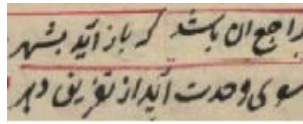 راجع آن باشد که باز آید بشهر
سوی وحدت آید از تفریق دهر